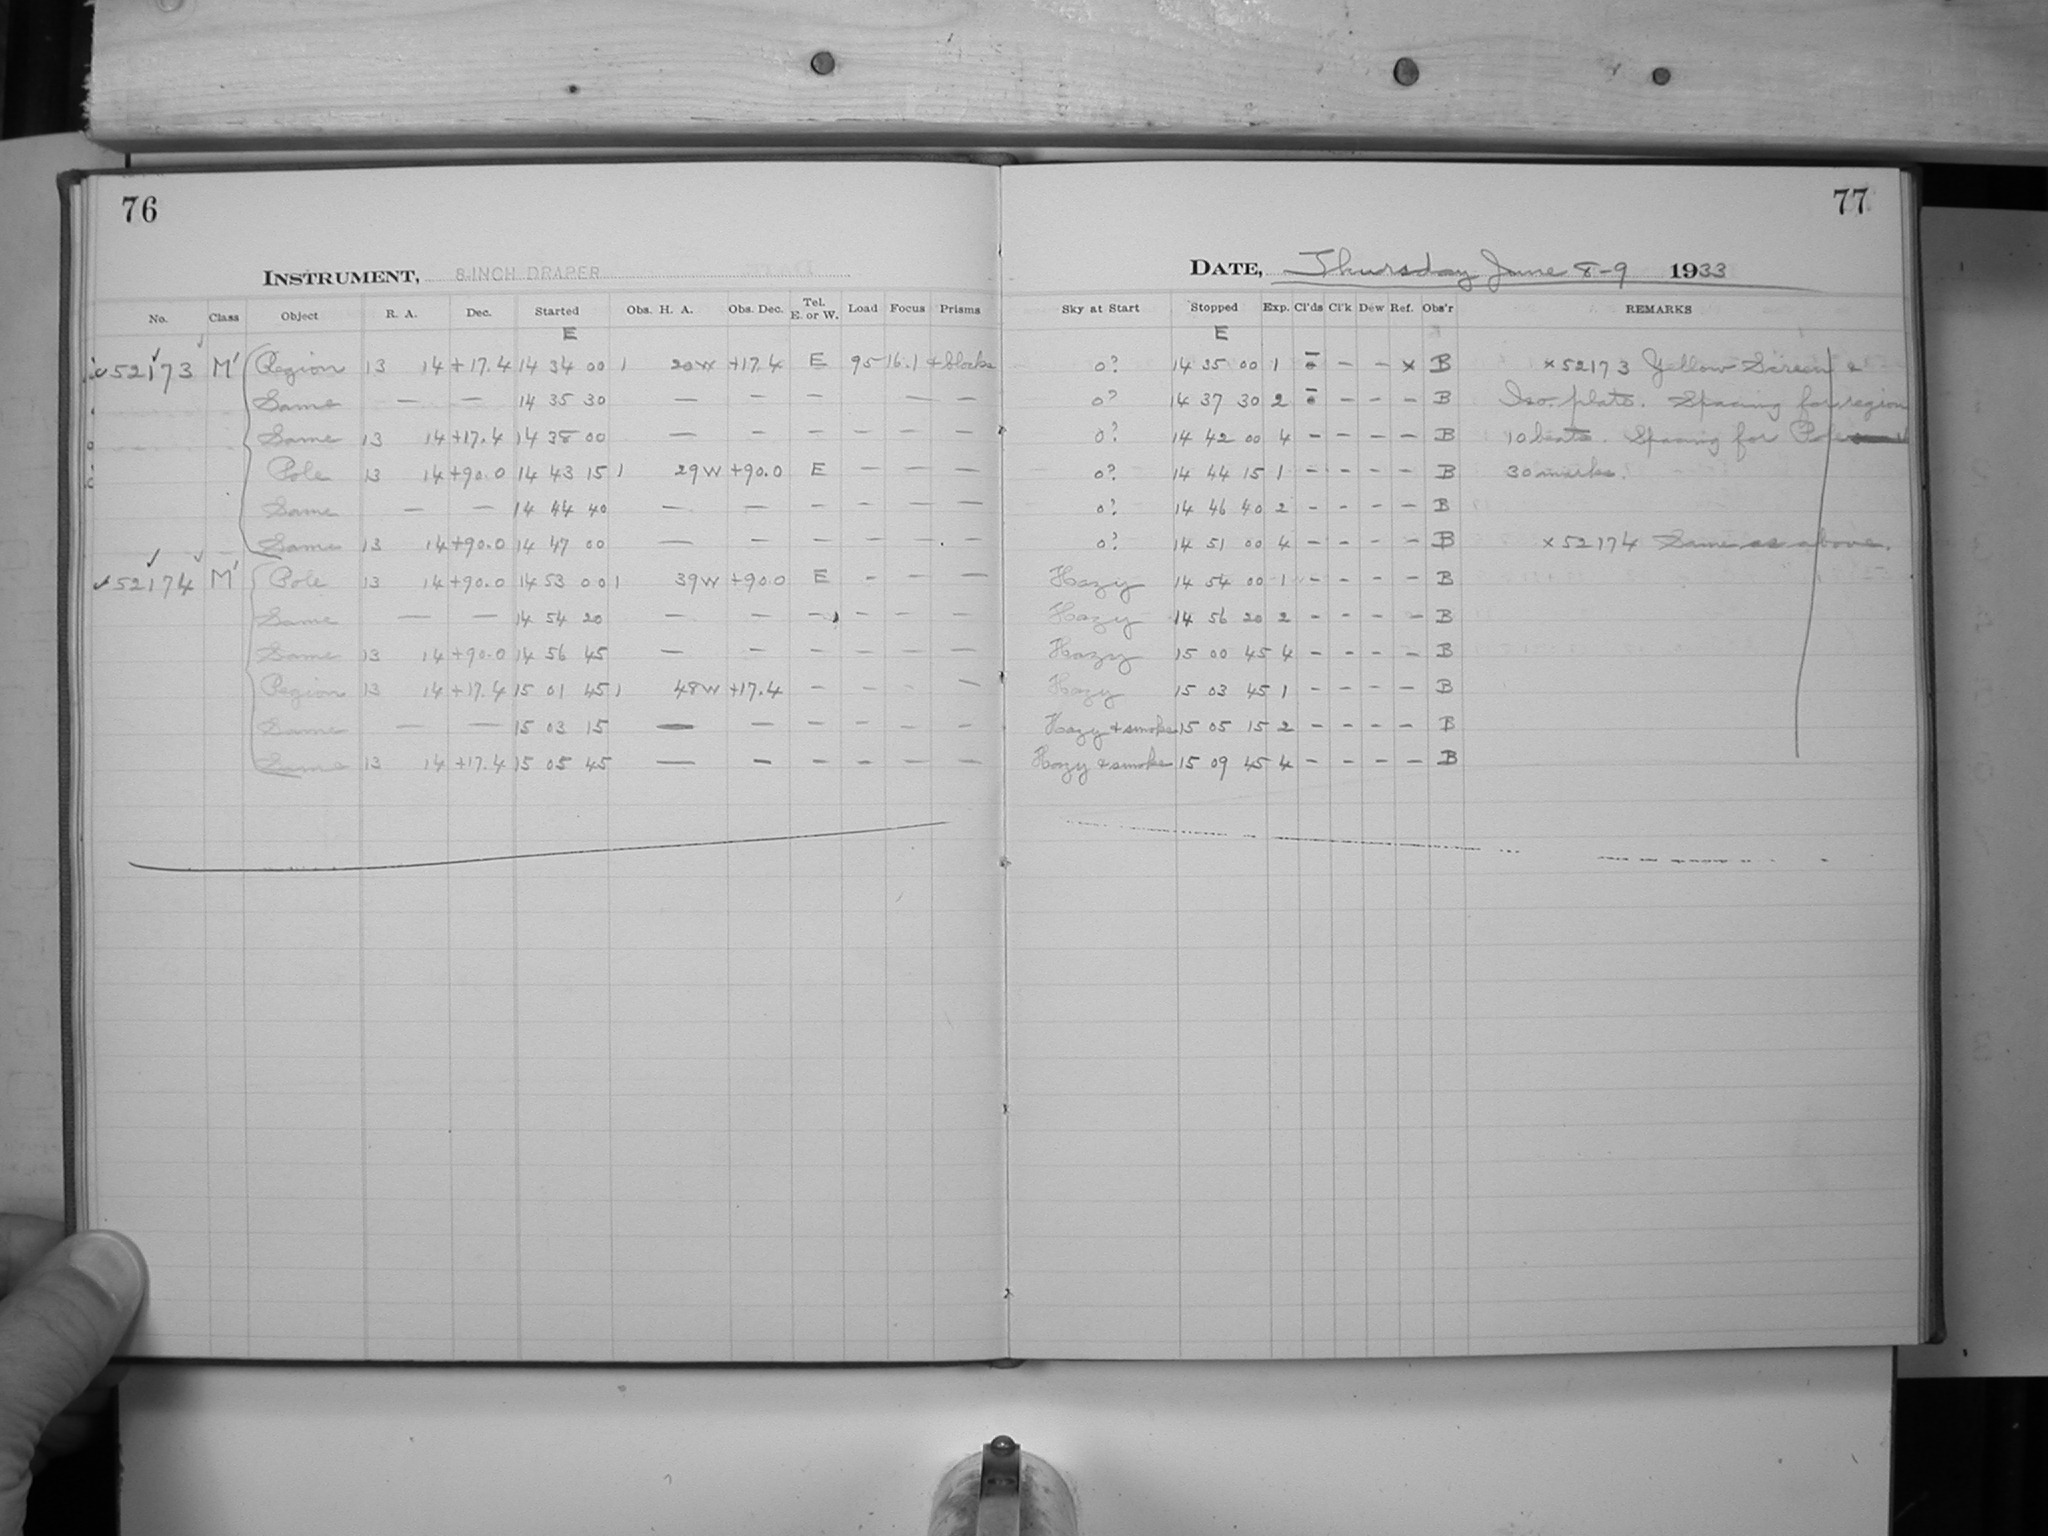 76
77
INSTRUMENT, 8-INCH DRAPER
DATE, Thursday June 8-9 1933
No. Class Object R. A. Dec. Started Obs. H. A. Obs. Dec. Tel. E. or W. Load Focus Prisms Sky at Start Stopped Exp. Cl'ds Cl'k Dew Ref. Obs'r REMARKS
E E
52173 M' Region 13 14 +17.4 14 34 00 1 20 W +17.4 E 95 16.1 + blocks 0? 14 35 00 1 – – x B x 52173 Yellow Screen &
Same — — 14 35 30 — — — — — 0? 14 37 30 2 – – – B Iso. plate. Spacing for region
Same 13 14 +17.4 14 38 00 — — — — — — 0? 14 42 00 4 – – – – B 10 beats. Spacing for Pole
Pole 13 14 +90.0 14 43 15 1 29 W +90.0 E — — — 0? 14 44 15 1 – – – – B 30 marks.
Same — — 14 44 40 — — — — — — 0? 14 46 40 2 – – – – B
Same 13 14 +90.0 14 47 00 — — — — — — 0? 14 51 00 4 – – – – B x 52174 Same as above.
52174 M' Pole 13 14 +90.0 14 53 00 1 39 W +90.0 E – – — Hazy 14 54 00 1 – – – – B
Same — — 14 54 20 — — — — — — Hazy 14 56 20 2 – – – – B
Same 13 14 +90.0 14 56 45 — — — — — — Hazy 15 00 45 4 – – – – B
Region 13 14 +17.4 15 01 45 1 48 W +17.4 – – – — Hazy 15 03 45 1 – – – – B
Same — — 15 03 15 — — — — — — Hazy + smoke 15 05 15 2 – – – – B
Same 13 14 +17.4 15 05 45 — — — — — — Hazy + smoke 15 09 45 4 – – – – B